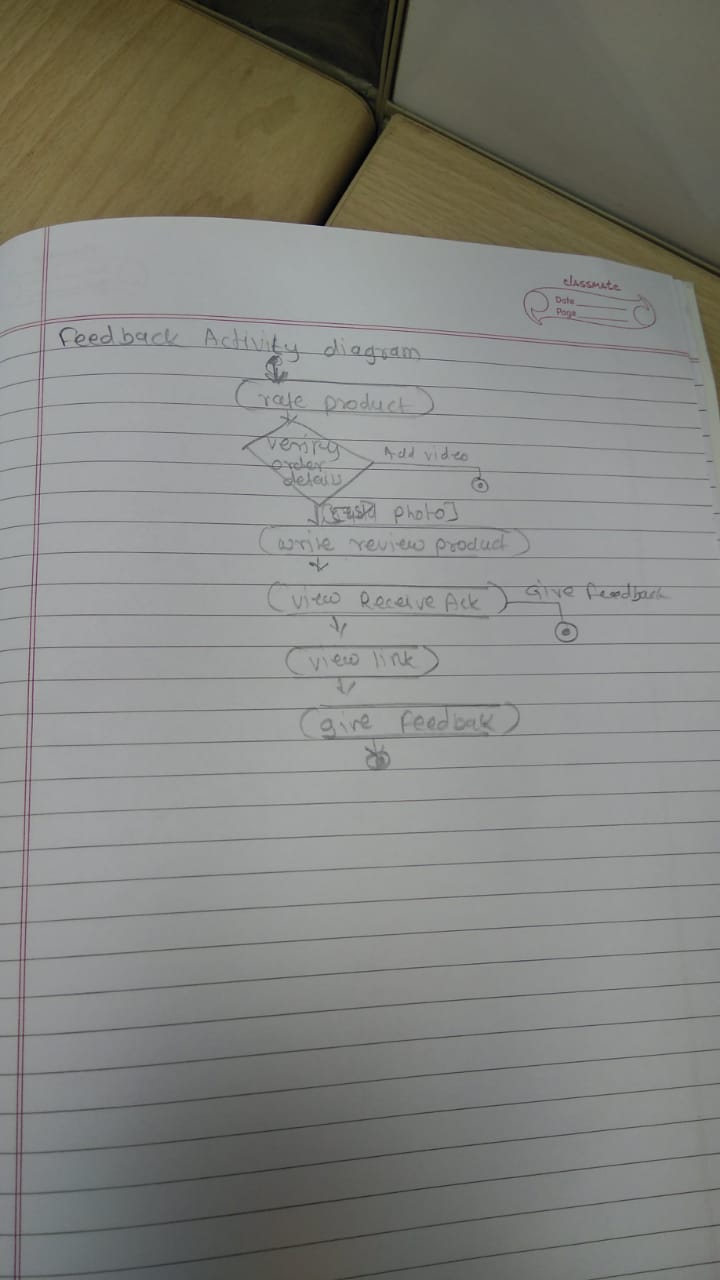 classmate
Date
Page
Feedback Activity diagram
rate product
verify
order
details
Add video
photo]
write review product
view Receive Ack
Give feedback
view link
give feedbak